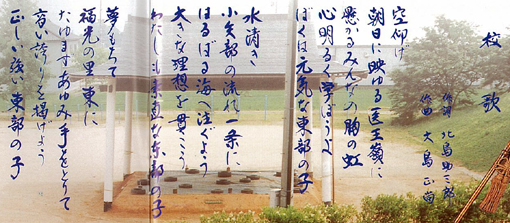 校歌
作詞 北島 三郎
作曲 大島正
空仰げ
朝日に映ゆる医王嶺に
懸かるみんなの胸の虹
心明るく学ぼうよ
ぼくは元気な東部の子
水清き
小矢部の流れ一条に
はるばる海へ注ぐよう
大きな理想を貫こう
わたしは素直な東部の子
夢もちて
福光の里東に
たゆまずあゆみ手をとりて
高い誇りを掲げよう
正しい強い東部の子